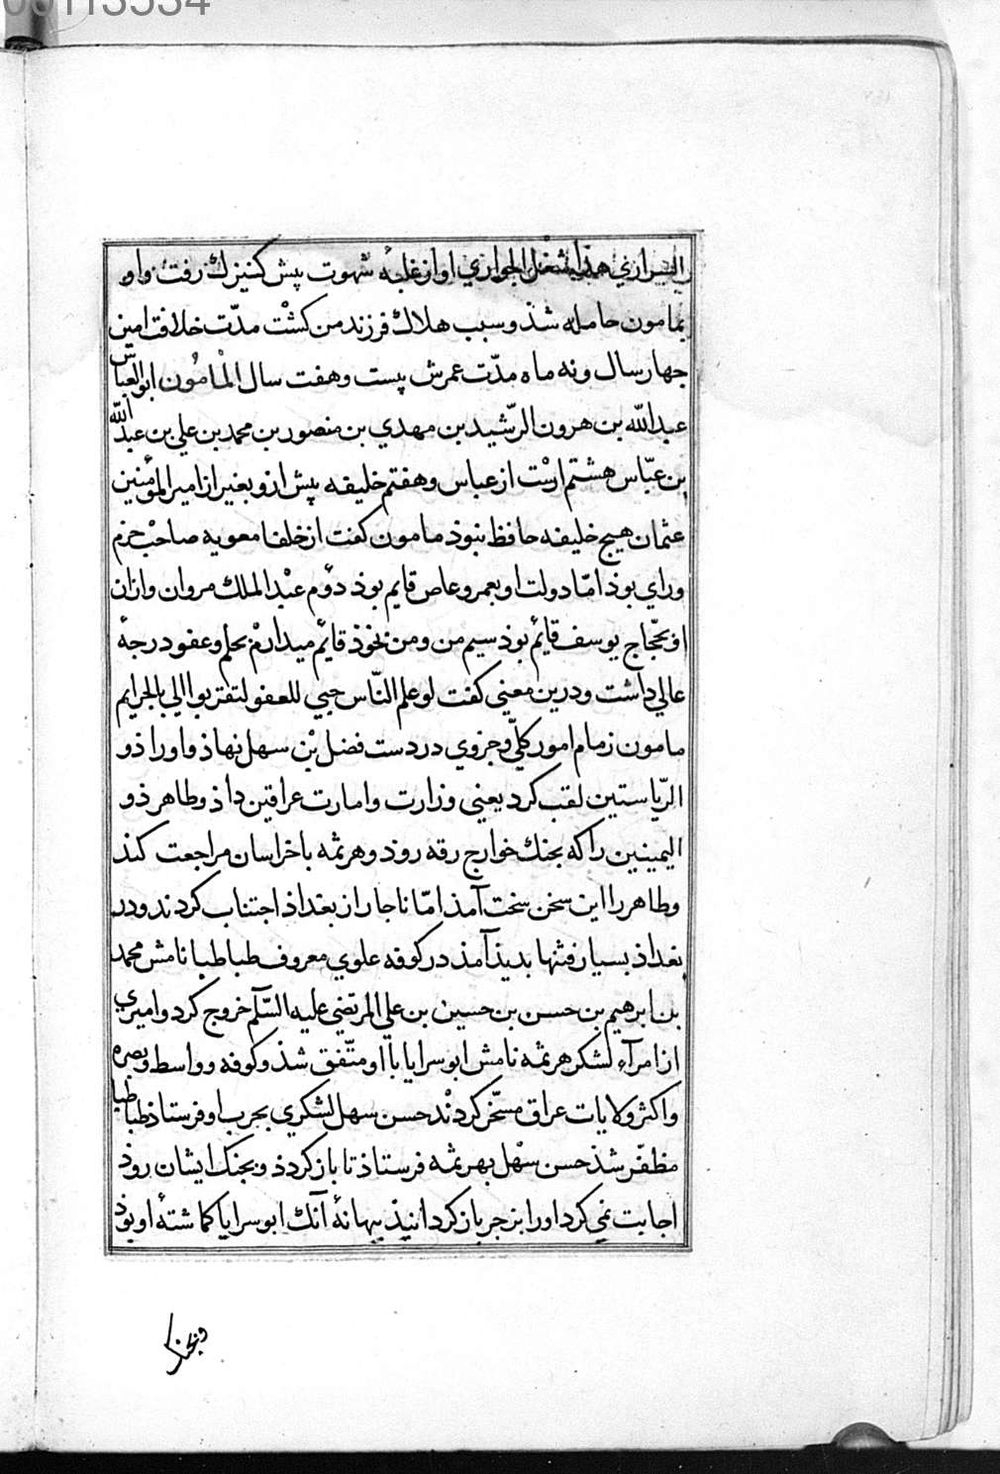 00113534
السراري هذا شغل الجواري او از غلبهٔ شهوت پیش کنیزک رفت و او
بمامون حامله شذ و سبب هلاک فرزند من کشت مدّت خلافت امین
جهار سال و نه ماه مدّت عمرش بیست و هفت سال المامُون ابو العباس
عبدالله بن هرون الرّشید بن مهدي بن منصور بن محمد بن علي بن عبدالله
بن عبّاس هشتم ارث از عباس و هفتم خلیفه پیش ازو بغیر از امیر المؤمنین
عثمان هیج خلیفه حافظ نبوذ مامون کفت از خلفا معویه صاحب حزم
وراي بوذ امّا دولت او بعمرو عاص قایم بوذ دوّم عبْد الملک مروان وازان
او بحجّاج یوسف قائم بوذ سیم من ومن بخوذ قایم میدارم بحلم وعفو درجهٔ
عالي داشت ودرین معني کفت لو علم النّاس حبي للعفو لتقربوا الي بالجرایم
مامون زمام امور کلّي وجزوي در دست فضل بْن سهل نهاذ واورا ذو
الرّیاستین لقب کرد یعني وزارت وامارت عراقین داذ وطاهر ذو
الیمینین را که بجنک خوارج رقه روذ وهرثمه باخراسان مراجعت کند
وطاهر را این سخن سخت آمذ امّا ناجار از بغداذ اجتناب کردند ودر
بغداذ بسیار فتنها بدیذ آمذ در کوفه علوي معروف طباطبا نامش محمد
بن ابرهیم بن حسن بن حسین بن علي المرتضي علیه السّلم خروج کرد وامیري
از امرآء لشکر هرثمه نامش ابو سرایا با او متّفق شذ وکوفه وواسط وبصره
واکثر ولایات عراق مسخّر کردند حسن سهل لشکري بحرب او فرستاذ طباطبا
مظفّر شذ حسن سهل بهرثمه فرستاذ تا باز کردذ وبجنک ایشان روذ
اجابت نمي کرد اورا بزجر باز کردانیذ ببهانهٔ آنک ابو سرایا کماشتهٔ او بوذ
وبجنک